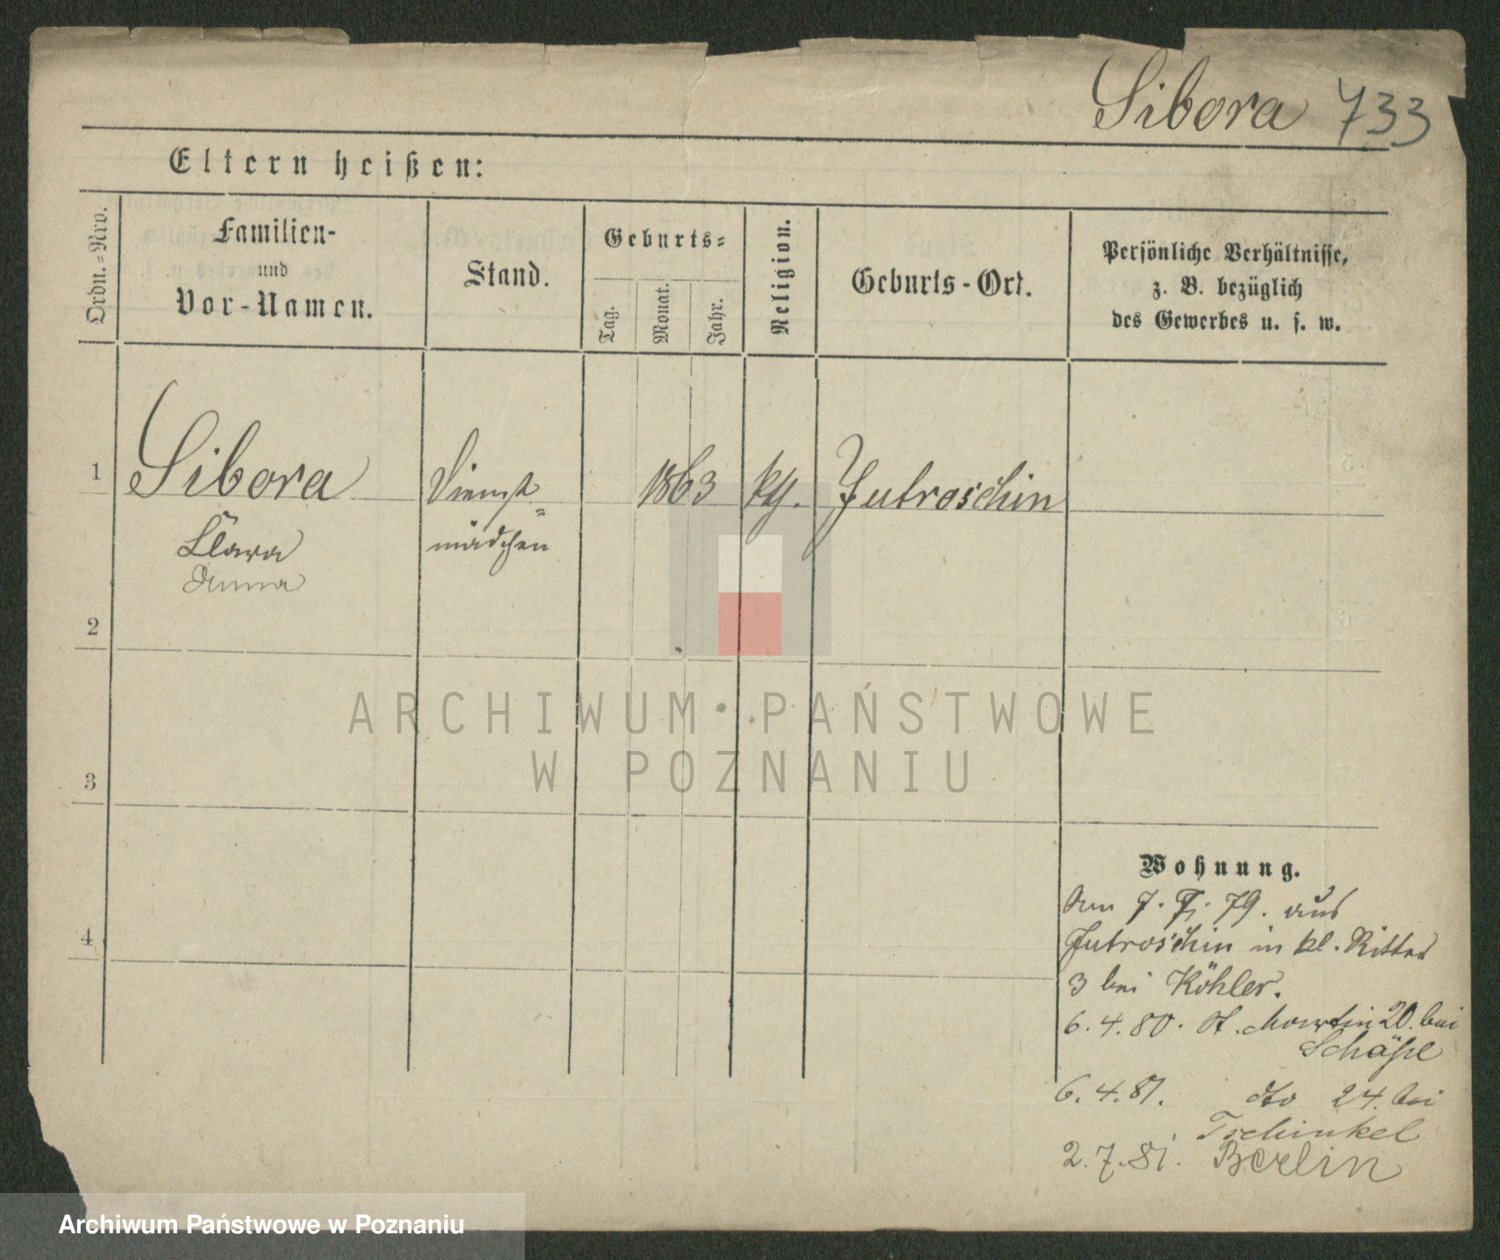 Sibora 733
Eltern heißen:
Ordn.-Nro.
Familien-
und
Vor-Namen.
Stand.
Geburts-
Tag.
Monat.
Jahr.
Religion.
Geburts-Ort.
Persönliche Verhältnisse,
z. B. bezüglich
des Gewerbes u. s. w.
1 Sibora Dienst- 1863 kth. Jutroschin
Clara mädchen
Anna
2
3
4
Wohnung.
Am 7. 79. aus
Jutroschin in kl. Ritter
3 bei Köhler.
6.4.80. St. Martin 20. bei
6.4.81. dto 24. bei
Tschinkel
2.7.81. Berlin
ARCHIWUM PAŃSTWOWE
W POZNANIU
Archiwum Państwowe w Poznaniu